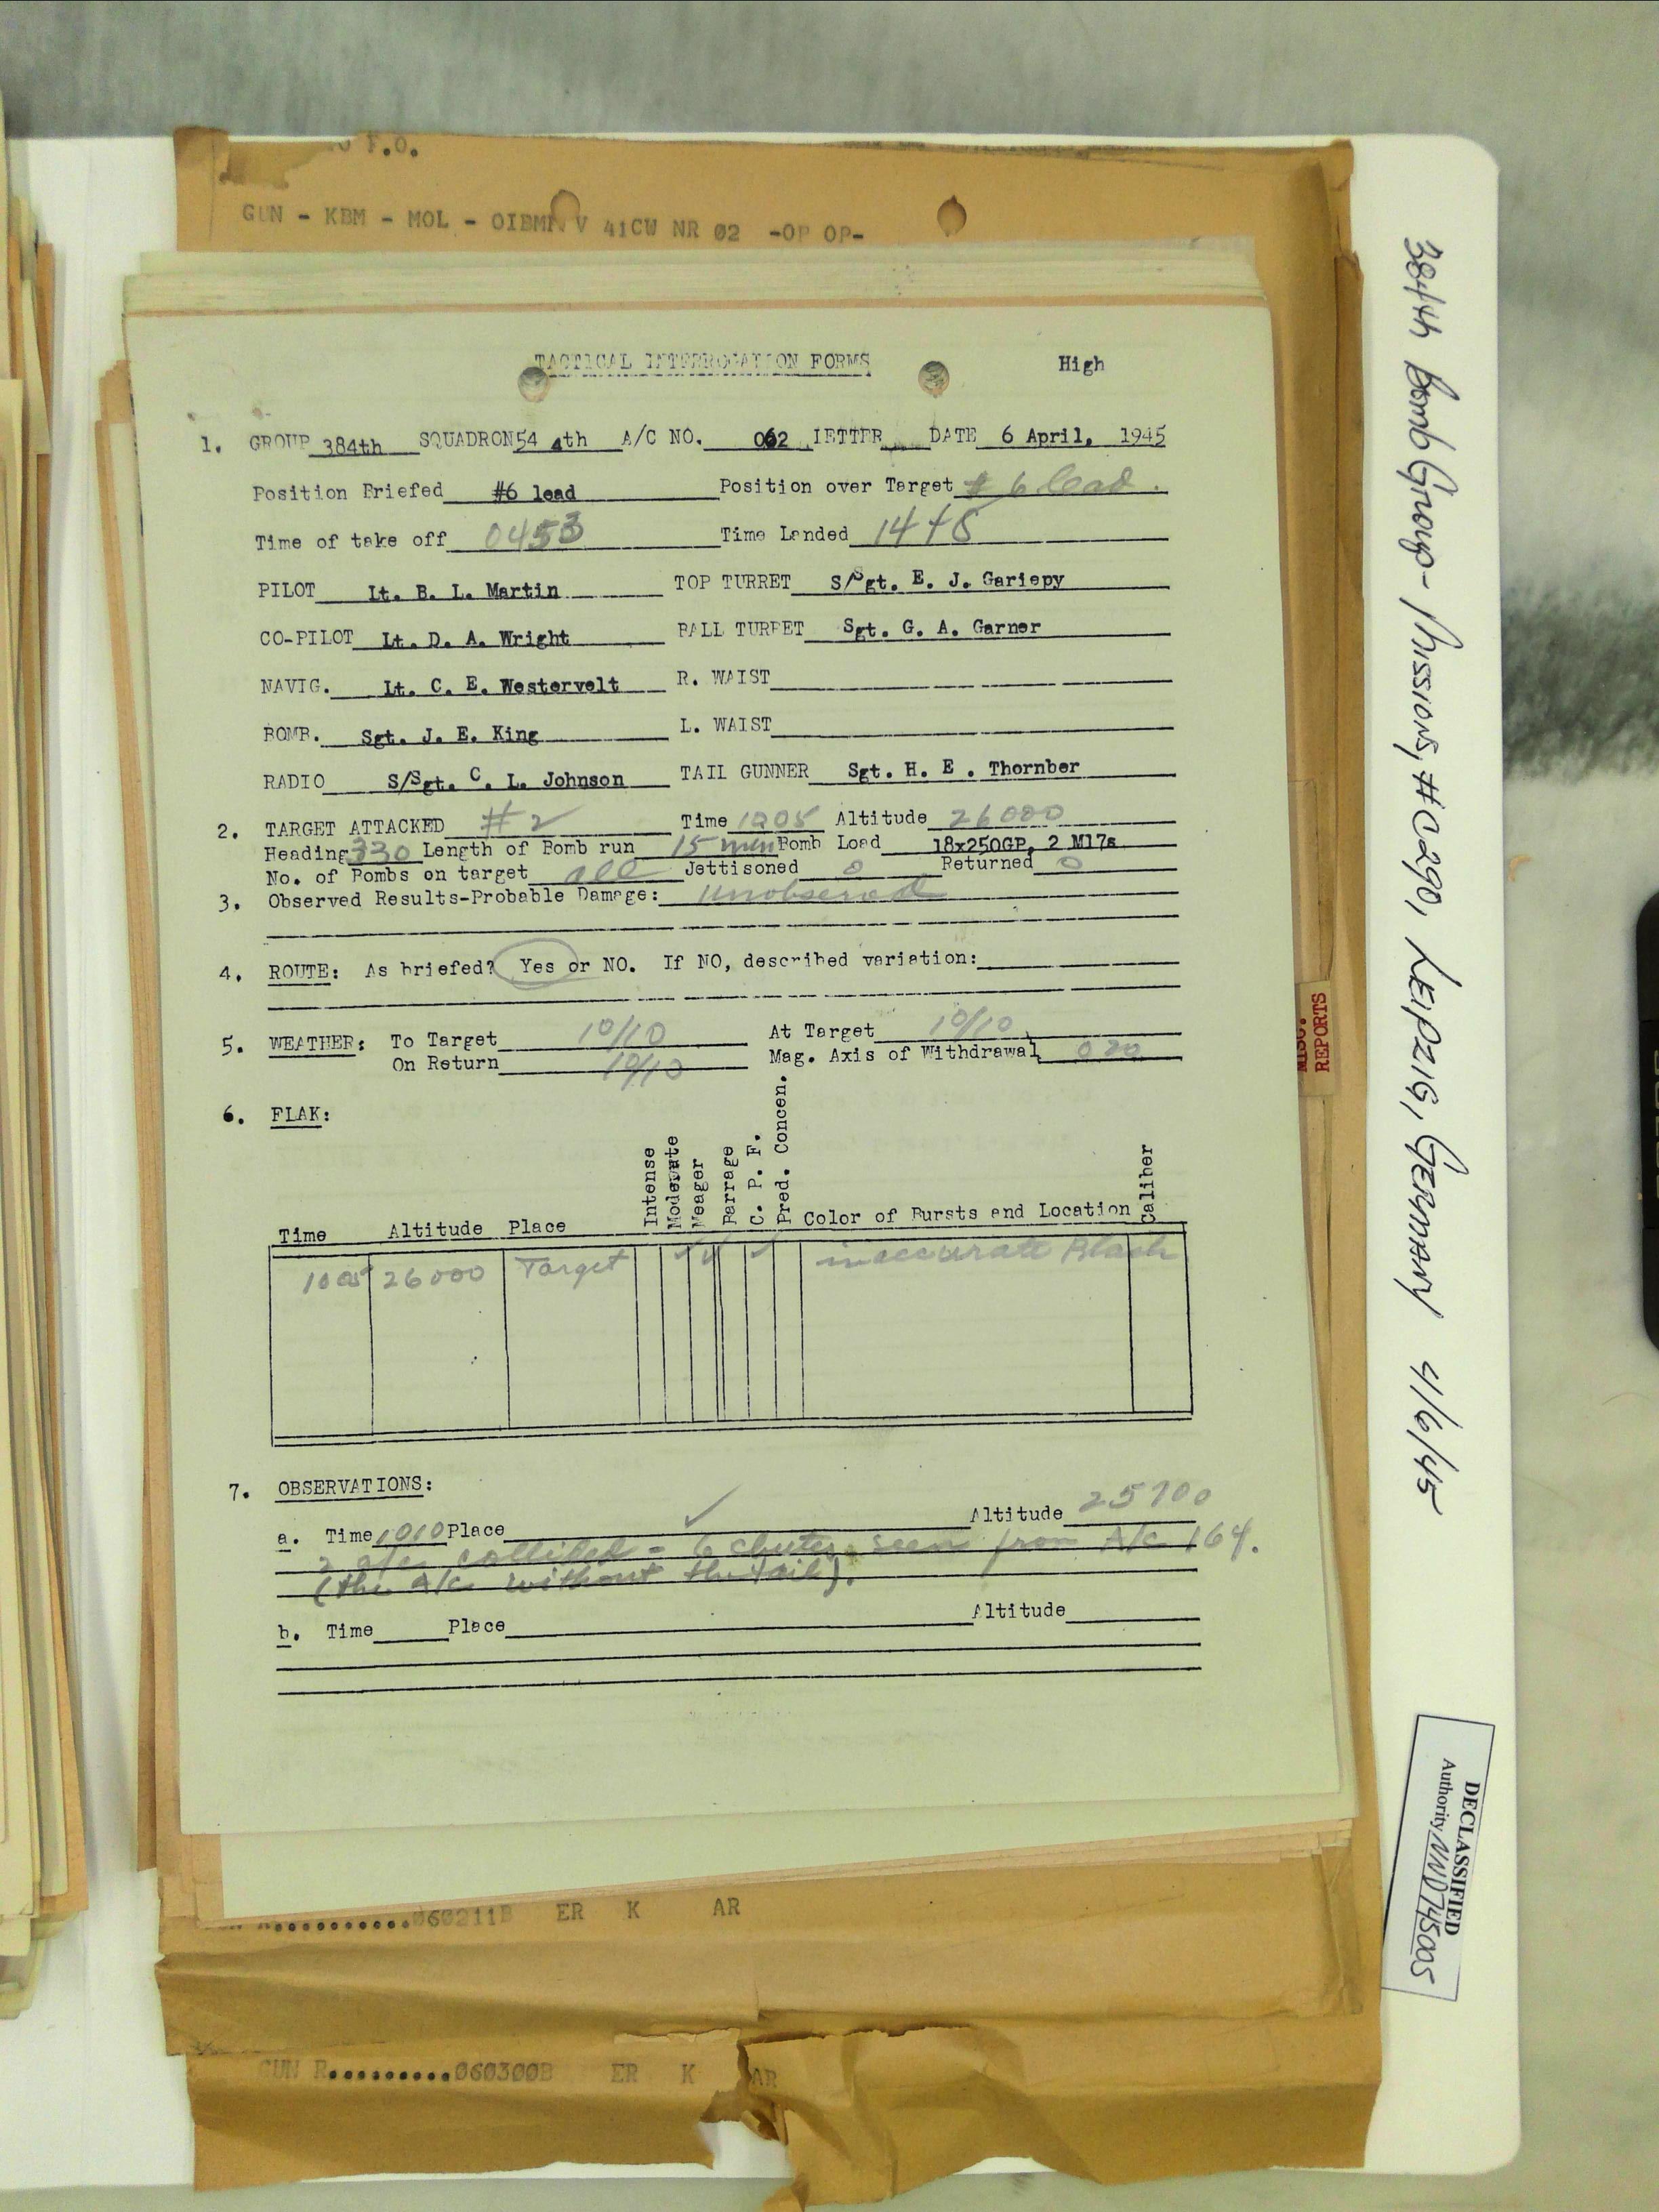 F.O.
GUN - KBM - MOL - OIBMN V 41CW NR 02 -OP OP-
TACTICAL INTERROGATION FORMS High
1. GROUP 384th SQUADRON 544th A/C NO. 062 LETTER DATE 6 April, 1945
Position Briefed #6 lead Position over Target # 6 lead.
Time of take off 0453 Time Landed
PILOT Lt. B. L. Martin TOP TURRET S/Sgt. E. J. Gariepy
CO-PILOT Lt. D. A. Wright BALL TURRET Sgt. G. A. Garner
NAVIG. Lt. C. E. Westervelt R. WAIST
BOMB. Sgt. J. E. King L. WAIST
RADIO S/Sgt. C. L. Johnson TAIL GUNNER Sgt. H. E. Thornber
2. TARGET ATTACKED #2 Time 1005 Altitude 26000
Heading 330 Length of Bomb run 15 min Bomb Load 18x250GP, 2 M17s
No. of Bombs on target all Jettisoned 0 Returned 0
3. Observed Results-Probable Damage: unobserved
4. ROUTE: As briefed? Yes or NO. If NO, described variation:
5. WEATHER: To Target 10/10 At Target 10/10
On Return 10/10 Mag. Axis of Withdrawal 020
6. FLAK:
Time Altitude Place Intense Moderate Meager Barrage C. P. F. Pred. Concen. Color of Bursts and Location Caliber
1005 26000 Target ✓ ✓ ✓ inaccurate Black
7. OBSERVATIONS:
a. Time 1010 Place ✓ Altitude 25700
2 a/c collided - 6 chutes seen from A/c 164.
(the a/c without the tail).
b. Time Place Altitude
060211B ER K AR
GUN R..........060300B ER K AR
MISC. REPORTS
384th Bomb Group - Missions, #C290, LEIPZIG, GERMANY 4/6/45
DECLASSIFIED
Authority NND745005